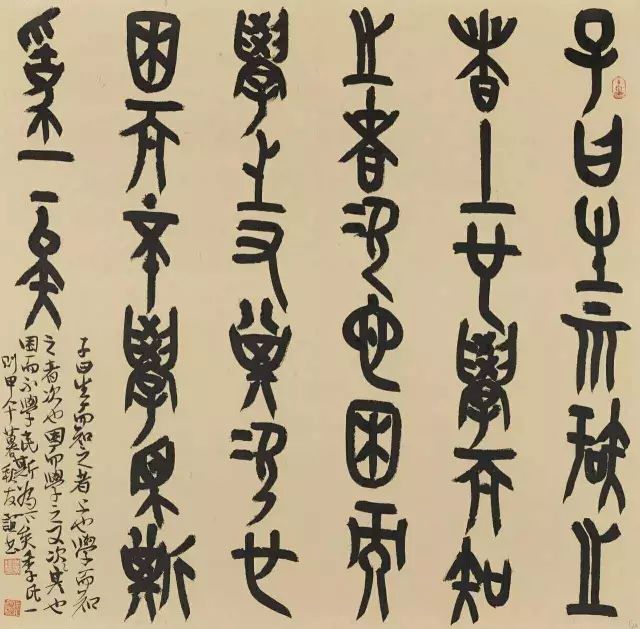 子曰生而知之
者上也學而知
之者次也困而
學之又其次也
困而不學民斯
爲下矣
子曰生而知之者上也學而知
之者次也困而學之又次其也
困而不學民斯為下矣季氏一
则甲午暮友誼书